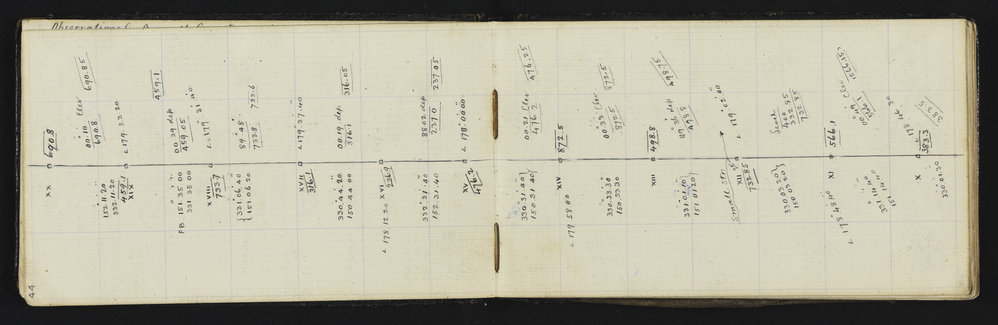 44
XX
690.8
152.11.20
332.11.20
00.10 Elev
690.8
690.85
459.1
XIX
∠179.23.20
459.1
FB 151 35.00
331 35.00
00.39 dep
459.05
XVIII
733.7
∠179
331.06.40
151.06.20
733.8
733.6
XVII
316.1
∠179.37.40
330.44.20
150.44.00
00.19 dep
316.1
316.05
∠178.12.20
XVI
236.9
332.31.40
152.31.40
88.02 dep
237.0
237.05
XV
476.2
∠178.00.00
330.31.40
150.31.40
00.21 Elev
476.2
476.25
∠179 58 00
XIV
872.5
330.33.30
150.33.30
00.33 Elev
872.5
872.5
XIII
498.8
331.01.10
151.01.20
dep
498.8
498.75
Small Stn
XII
732.85
∠179.02.00
330.03.20
150.03.20
level
400
332.85
732.85
∠178 48 40
XI
566.1
331.14.40
151.14.40
∠178 46 30
X
383.3
383.5
330.01.30